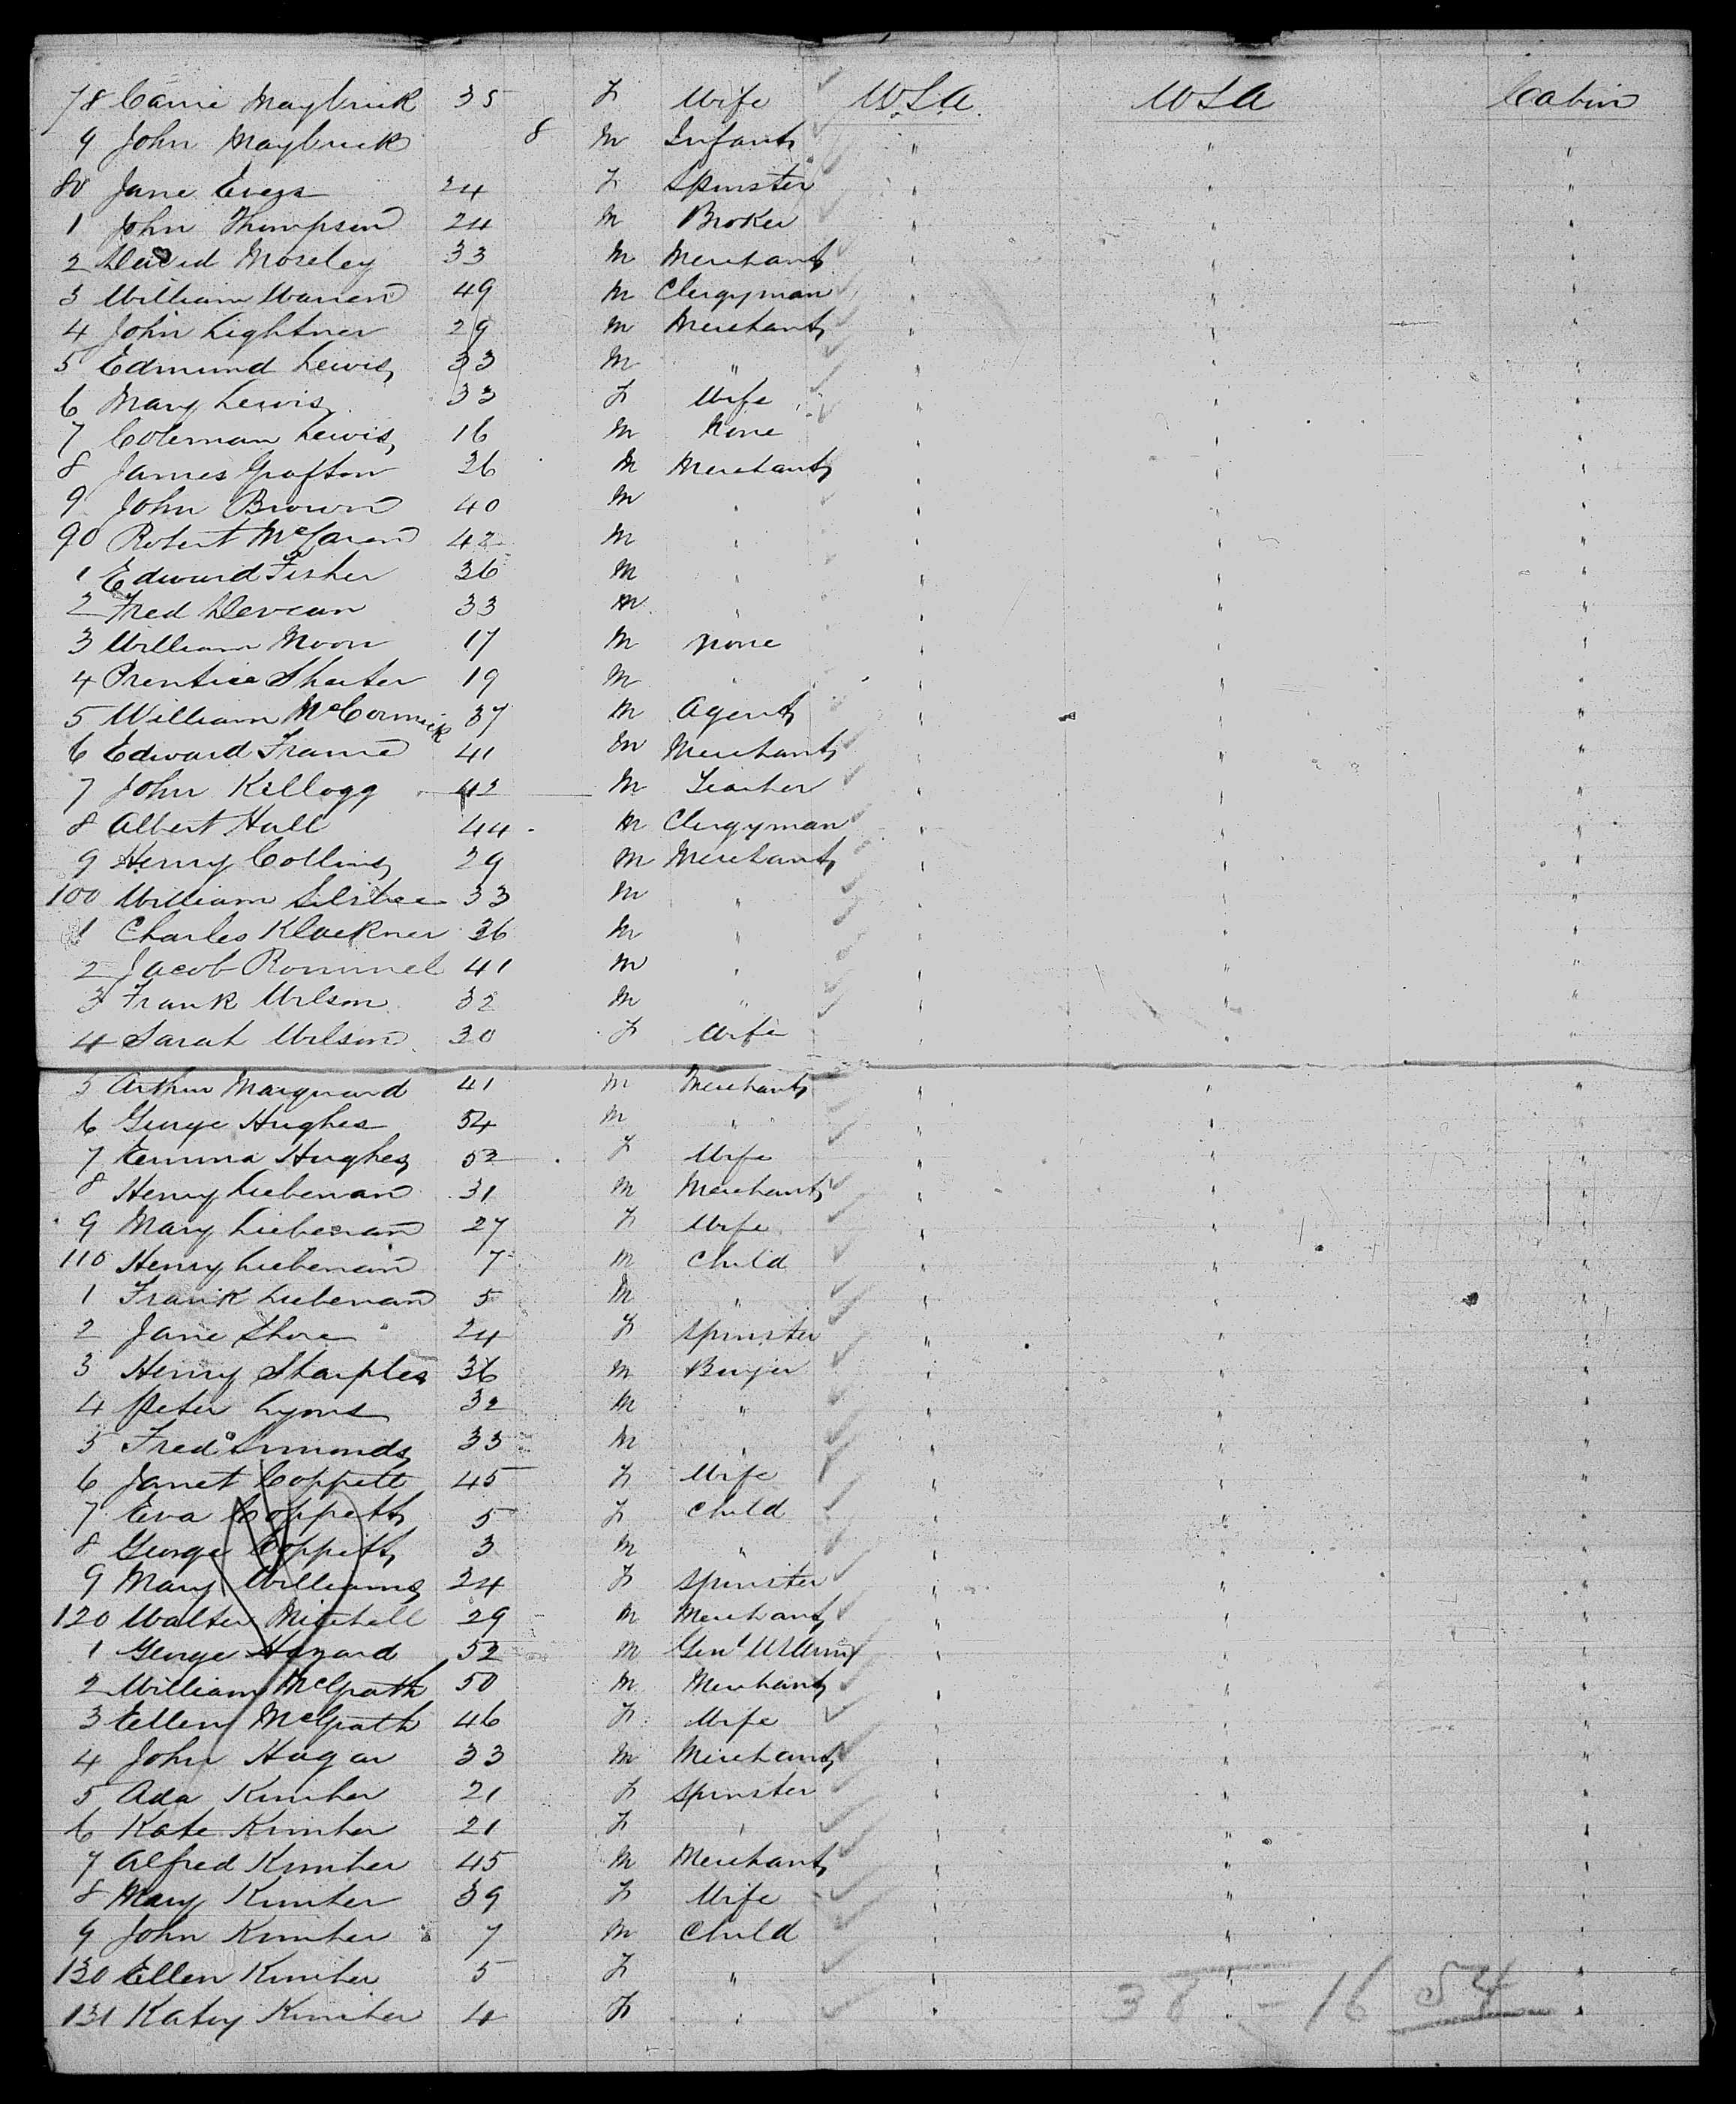 78 Carrie Maybrick 35 F Wife U.S.A. USA Cabin
9 John Maybrick 8 M Infant " " "
80 Jane Evers 24 F Spinster " " "
1 John Thompson 24 M Broker " " "
2 David Moseley 33 M Merchant " " "
3 William Warren 49 M Clergyman " " "
4 John Lightner 29 M Merchant " " "
5 Edmund Lewis 33 M " " " "
6 Mary Lewis 33 F Wife " " "
7 Coleman Lewis 16 M None " " "
8 James Grafton 26 M Merchant " " "
9 John Brown 40 M " " " "
90 Robert McLaren 42 M " " " "
1 Edward Fisher 36 M " " " "
2 Fred Devean 33 M " " " "
3 William Moon 17 M none " " "
4 Prentice Shorter 19 M " " " "
5 William McCormick 37 M Agent " " "
6 Edward Frame 41 M Merchant " " "
7 John Kellogg 42 M Teacher " " "
8 Albert Hall 44 M Clergyman " " "
9 Henry Collins 29 M Merchant " " "
100 William Silsbee 33 M " " " "
1 Charles Klackner 36 M " " " "
2 Jacob Rommel 41 M " " " "
3 Frank Wilson 32 M " " " "
4 Sarah Wilson 30 F Wife " " "
5 Arthur Marquand 41 M Merchant " " "
6 George Hughes 54 M " " " "
7 Emma Hughes 52 F Wife " " "
8 Henry Liebenan 31 M Merchant " " "
9 Mary Liebenan 27 F Wife " " "
110 Henry Liebenan 7 M Child " " "
1 Frank Liebenan 5 M " " " "
2 Jane Shore 24 F Spinster " " "
3 Henry Sharples 36 M Buyer " " "
4 Peter Lyons 32 M " " " "
5 Fredk Simonds 33 M " " " "
6 Janet Coppett 45 F Wife " " "
7 Eva Coppett 5 F Child " " "
8 George Coppett 3 M " " " "
9 Mary Williams 24 F Spinster " " "
120 Walter Mitchell 29 M Merchant " " "
1 George Hazard 52 M Genl US Army " " "
2 William McGrath 50 M Merchant " " "
3 Ellen McGrath 46 F Wife " " "
4 John Hagar 33 M Merchant " " "
5 Ada Kimber 21 F Spinster " " "
6 Kate Kimber 21 F " " " "
7 Alfred Kimber 45 M Merchant " " "
8 Mary Kimber 39 F Wife " " "
9 John Kimber 7 M Child " " "
130 Ellen Kimber 5 F " " " "
131 Katey Kimber 4 F " " " "
38 - 16 54